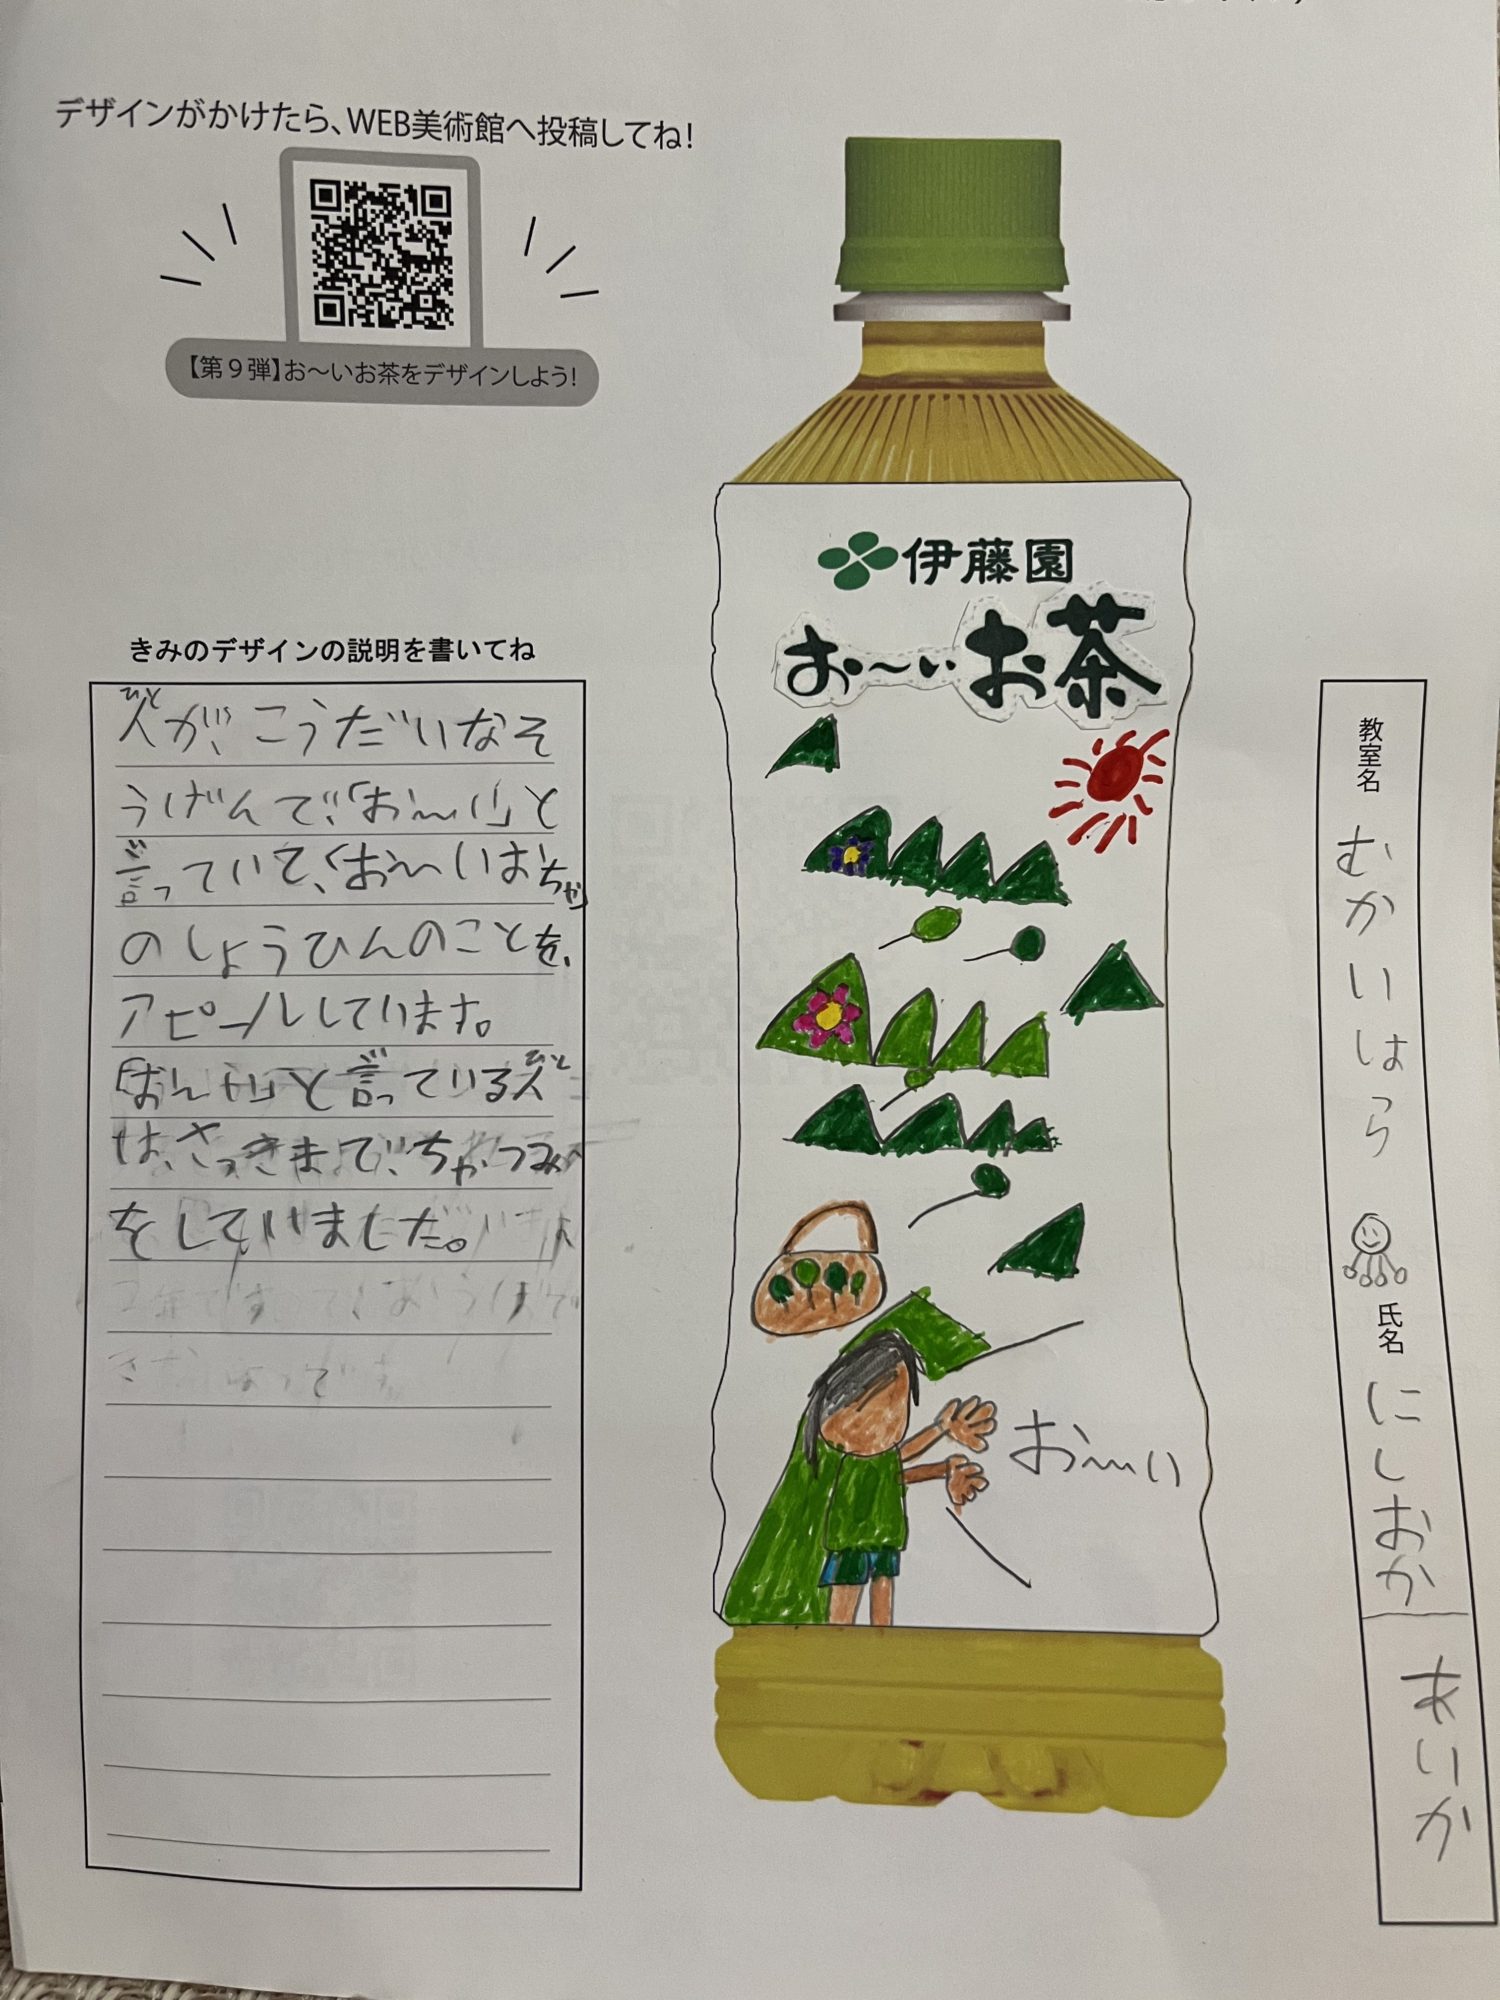 デザインがかけたら、WEB美術館へ投稿してね!
【第9弾】お〜いお茶をデザインしよう!
きみのデザインの説明を書いてね
人が、こうだいなそ
ひと
うげんで、「お〜い」と
言っていて、「お〜いおちゃ」
のしょうひんのことを、
アピールしています。
「お〜い」と言っている人
ひと
は、さっきまで、ちゃつみ
をしていました。
伊藤園
お〜いお茶
お〜い
教室名
むかいはら
氏名
にしおか
あいか